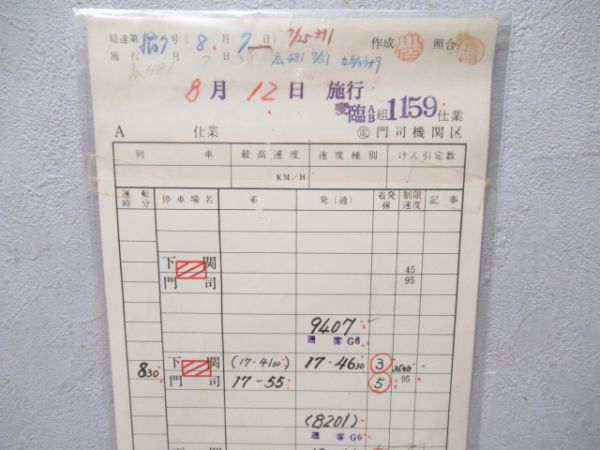 局達第 号 (8.月7日) 7/25-391 作成 照合
施行 月 日 広481 7/31
8月12日 施行
変臨AB組1159仕業
A 仕業 門司機関区
列 車 最高速度 速度種別 けん引定数
KM/H
運転時分 停車場名 着 発(通) 着発線 制限速度 記事
下 関 45
門 司 95
9407
通 客G6
830 下 関 (17-4100) 17-4630 3
門 司 17-55 5 95
(8201)
通 客G6